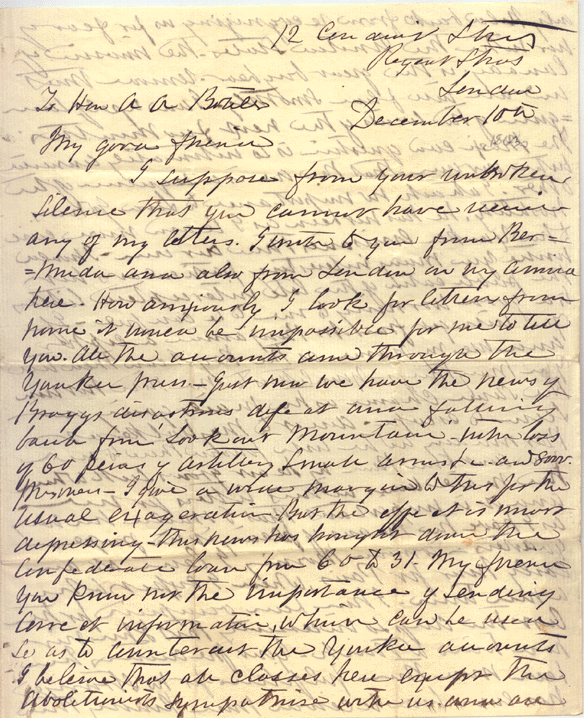 12 Conduit Street
Regent Street
London
December 10th
1863
To Hon A R Boteler
My good friend
I suppose from your unbroken
silence that you cannot have received
any of my letters. I wrote to you from Ber=
=muda and also from London on my arrival
here. How anxiously I look for letters from
home it would be impossible for me to tell
you. All the accounts come through the
Yankee press - Just now we have the news of
Braggs disastrous defeat and falling
back from 'Look out Mountain' with loss
of 60 pieces of artillery small arms &c and 8000
Prisoners - I give a wide margin to this for the
usual exageration. But the effect is most
depressing - this news has brought down the
Confederate loan from 60 to 31. My friend
You know not the importance of sending
correct information, which can be used
so as to counteract the Yankee accounts
I believe that all classes here except the
Abolitionists sympathise with us and are